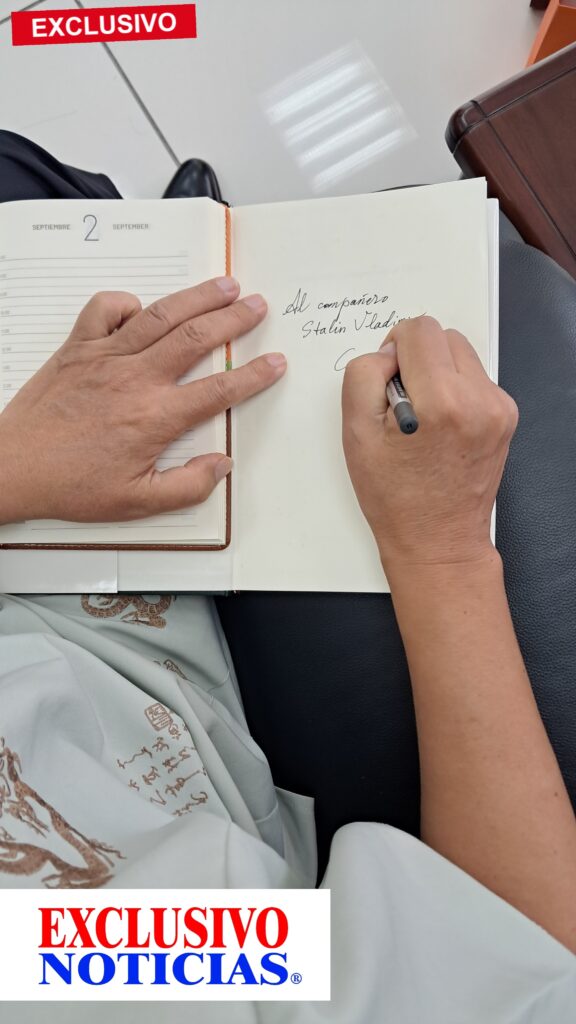 EXCLUSIVO
SEPTIEMBRE 2 SEPTEMBER
Al compañero
Stalin Vladimir
EXCLUSIVO
NOTICIAS®